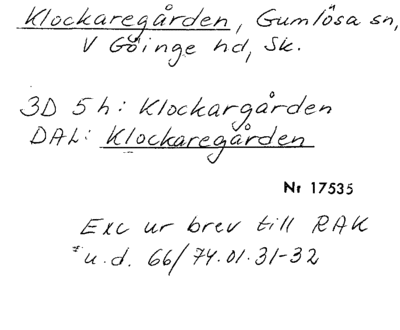 Klockaregården, Gumlösa sn,
V Göinge hd, Sk.
3D 5h: Klockargården
DAL: Klockaregården
Nr 17535
Exc ur brev till RAK
u.d. 66/74.01.31-32